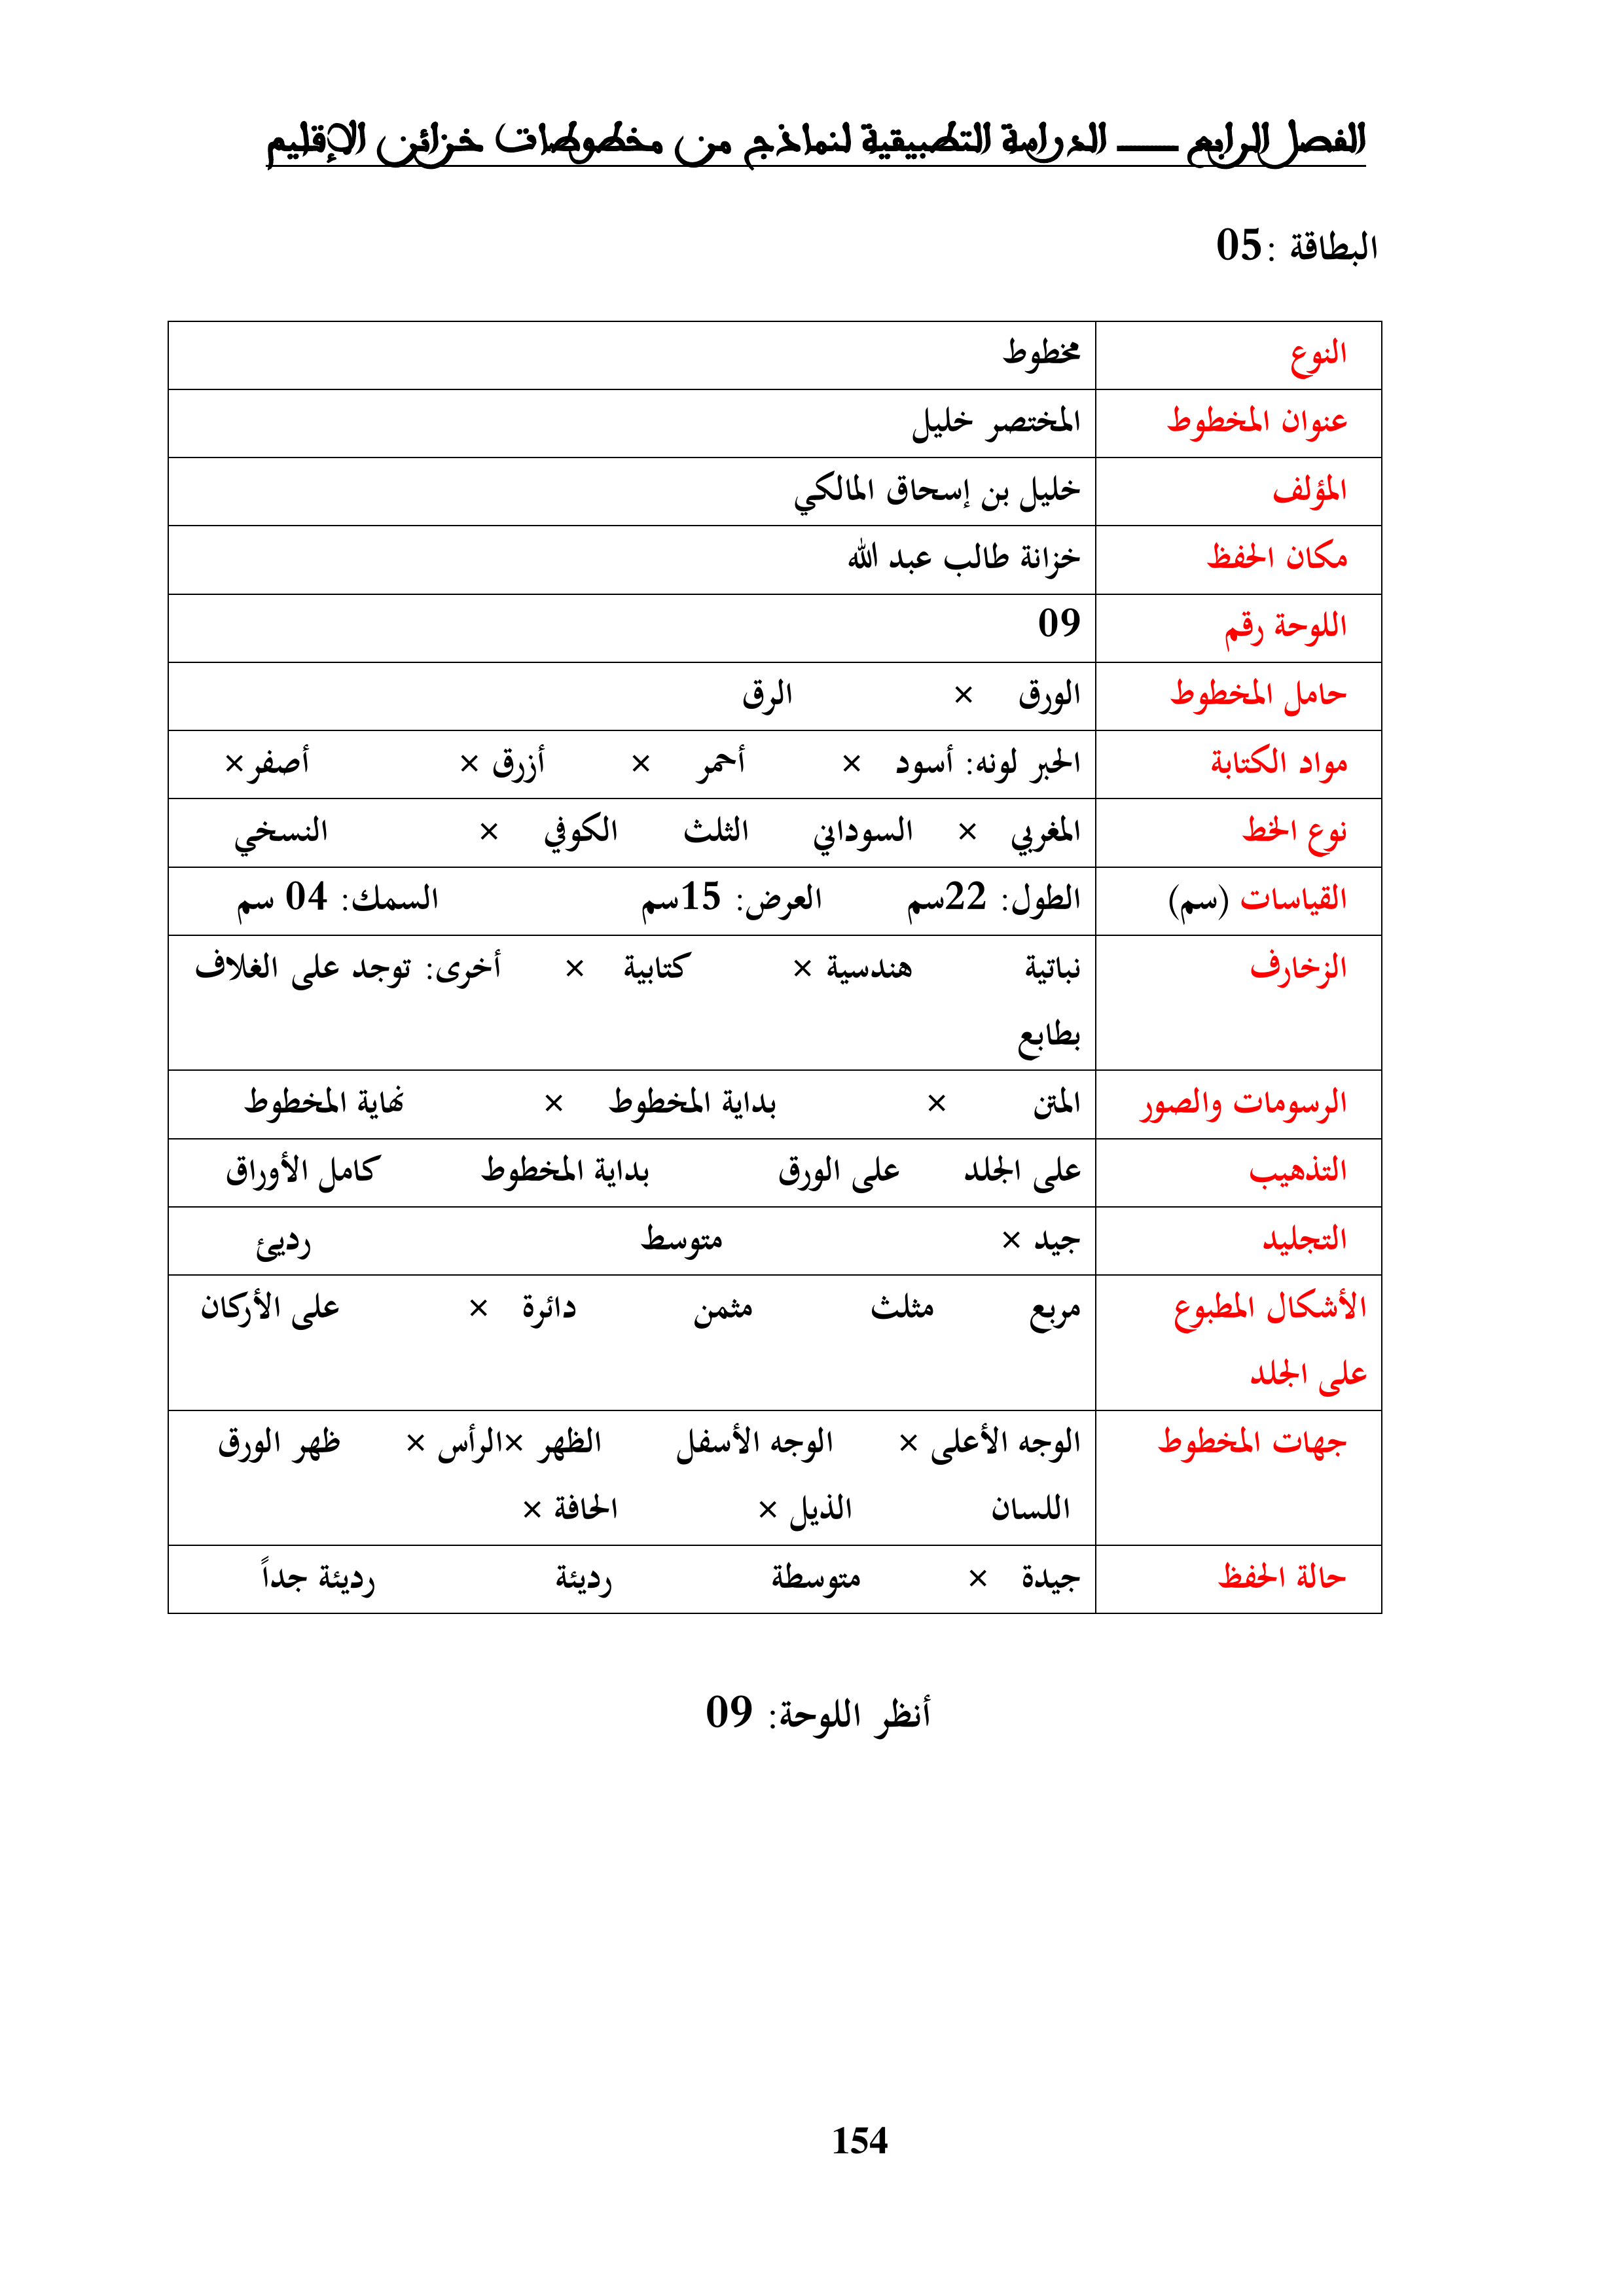 الفصل الرابع ـــــ الدراسة التطبيقية لنماذج من مخطوطات خزائن الإقليم
البطاقة :05
النوع مخطوط
عنوان المخطوط المختصر خليل
المؤلف خليل بن إسحاق المالكي
مكان الحفظ خزانة طالب عبد الله
اللوحة رقم 09
حامل المخطوط الورق × الرق
مواد الكتابة الحبر لونه: أسود × أحمر × أزرق × أصفر×
نوع الخط المغربي × السوداني الثلث الكوفي × النسخي
القياسات (سم) الطول: 22سم العرض: 15سم السمك: 04 سم
الزخارف نباتية هندسية × كتابية × أخرى: توجد على الغلاف
بطابع
الرسومات والصور المتن × بداية المخطوط × نهاية المخطوط
التذهيب على الجلد على الورق بداية المخطوط كامل الأوراق
التجليد جيد × متوسط رديئ
الأشكال المطبوع مربع مثلث مثمن دائرة × على الأركان
على الجلد
جهات المخطوط الوجه الأعلى × الوجه الأسفل الظهر ×الرأس × ظهر الورق
اللسان الذيل × الحافة ×
حالة الحفظ جيدة × متوسطة رديئة رديئة جداً
أنظر اللوحة: 09
154